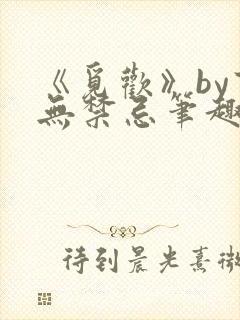 《覓歡》by
無禁忌筆趣
待到晨光熹微